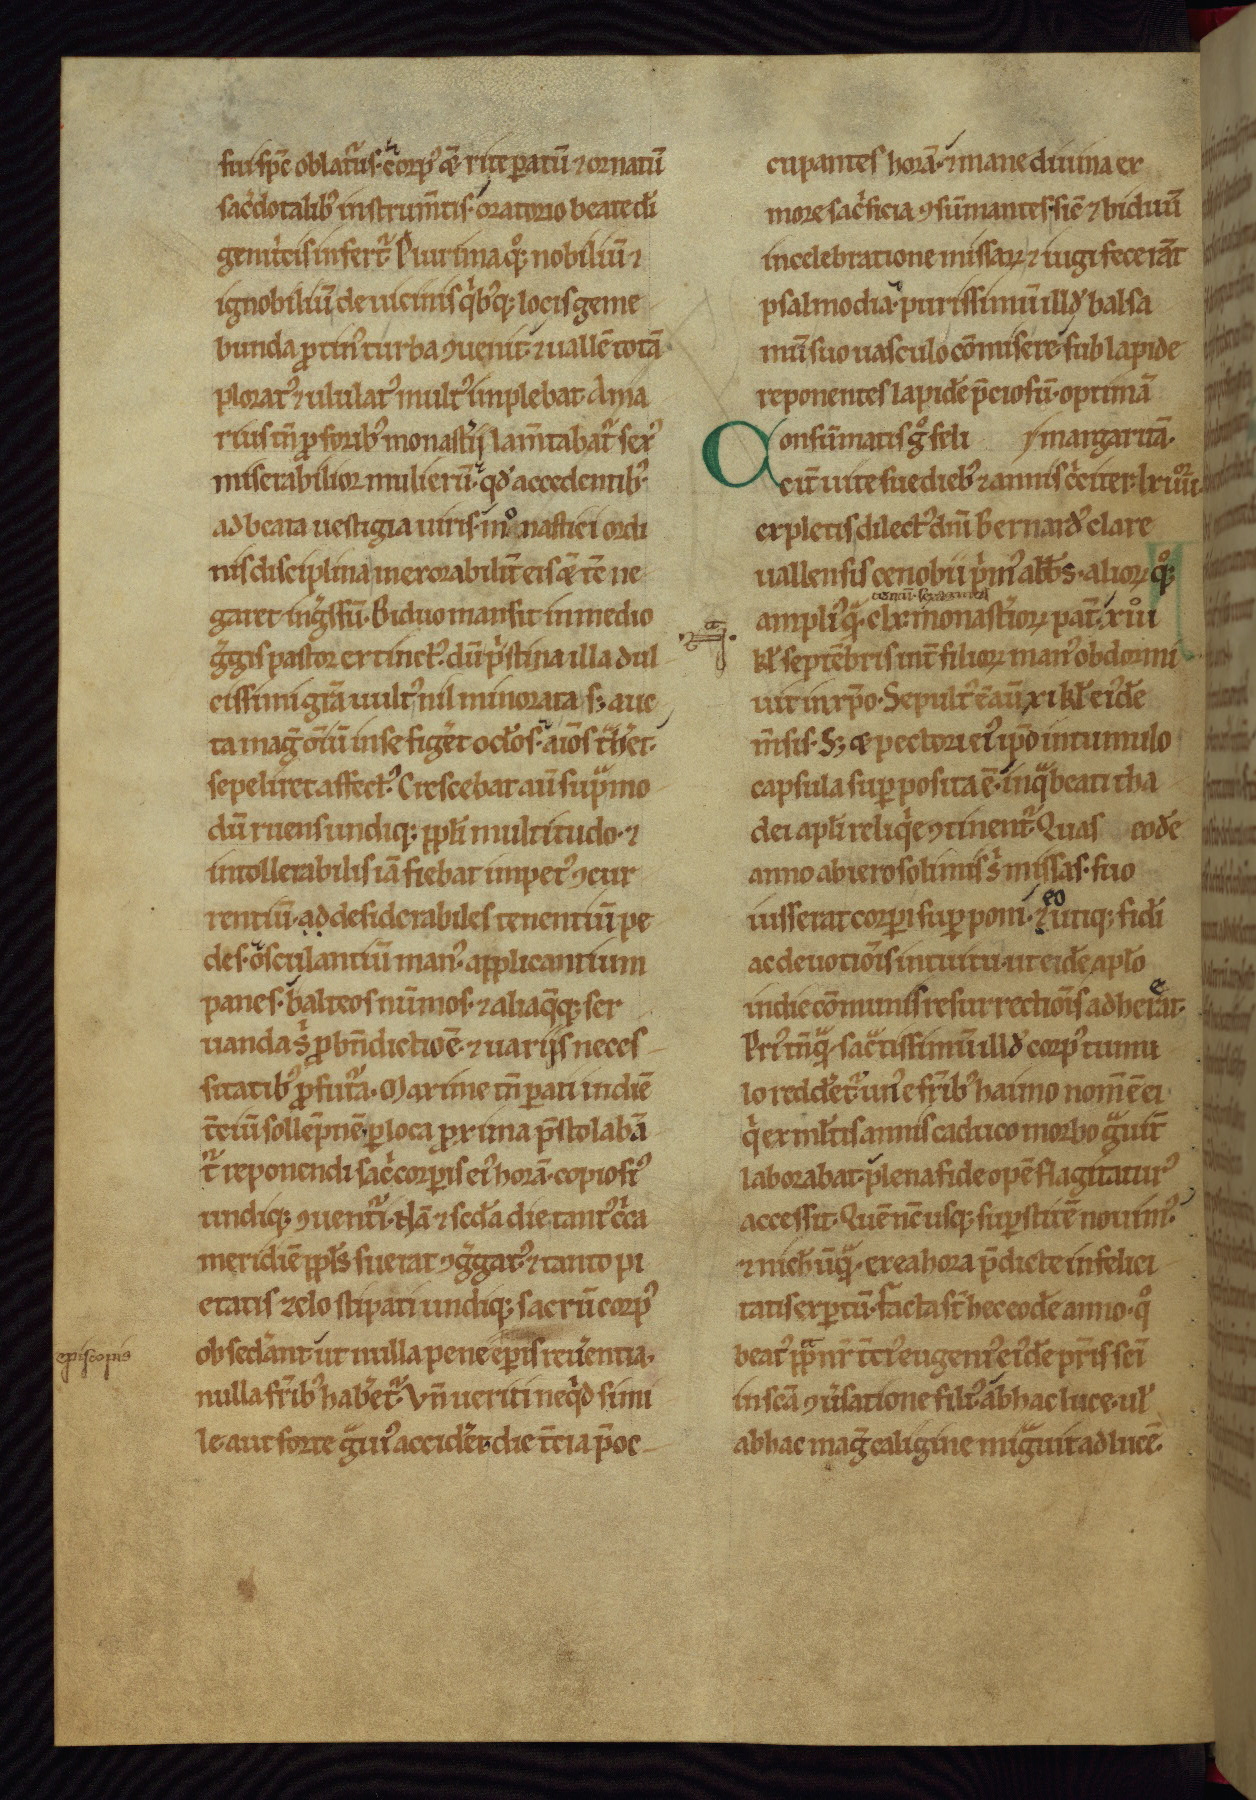 sui spe oblatus. corpꝰ & rite paratū ⁊ ornatū
sac̓dotalibꝰ instrum̄tis. oratorio beate di
genitricis infert᷑. Plurima qͦꝫ nobiliū ⁊
ignobiliū de uicinis qͥbꝰqꝫ locis geme
bunda ꝓtinꝰ turba ꝯuenit. ⁊ uallē totā
ploratꝰ ⁊ ululatꝰ multꝰ implebat. Ama
rius tn̄ ꝓ foribꝰ monast̓ij lam̄tabat᷑ sexꝰ
miserabilior mulierū. qd̓ accedentibꝰ
ad beata uestigia uiris. monastici ordi
nis disciplina inexorabilit̄ eis & tc̄ ne
garet ingͣssū. Biduo mansit in medio
gͤgis pastor extinctꝰ. dū pͥstina illa dul
cissimi gr̄a uultꝰ nil minorata sꝫ auc
ta mag̓ oīu in se figēt ocl̓os. aīos t̓h̓et.
sepelir̓et affectꝰ. Crescebat aū supͣ mo
dū ruens undiqꝫ ppl̓i multitudo. ⁊
intollerabilis iā fiebat impetꝰ ꝯcur
rentiū. ad desiderabiles tenentiū pe
des. osculantiū manꝰ. applicantium
panes. balteos nūmos. ⁊ alia q̄qꝫ ser
uanda s̓ ꝓ bn̄dictiōe. ⁊ uarijs neces
sitatibꝰ ꝓfut᷑a. Maxime tn̄ parati in diē
t̄ciū sollēpnē. ꝑ loca ꝓxima p̄stolabā
t᷑ reponendi sac̓ corporis eiꝰ horā. copiosiꝰ
undiqꝫ ꝯuent᷑i. Nā ⁊ sc̓da die tantꝰ c̓ca
meridiē ppl̓s fuerat ꝯgͤgatꝰ. ⁊ tanto pi
etatis zelo stipati undiqꝫ sacrū corpꝰ
obsed̓ant ut nulla pene ep̄is reu̓entia.
nulla fr̄ibꝰ hab̓et᷑. Vn̄ ueriti ne qͥd simi
le. aut forte gͣuiꝰ accid̓et. die t̄cia p̄oc
episcopis
cupantes horā. ⁊ mane diuina ex
more sac̓ficia ꝯsūmantes. sic̄ ⁊ biduū
in celebratione missaꝝ ⁊ iugi fecerāt
psalmodia. purissimū illd̓ balsa
mū suo uasculo cōmisere. sub lapide
reponentes lapidē p̄ciosū. optimā
Consūmatis gͦ feli margaritā.
cit̄ uite sue diebꝰ ⁊ annis c̓citer. lxiiii
expletis dilectꝰ dn̄i Bernardꝰ clare
uallensis cenobii pͥmꝰ abb̄s. alioꝝ qͦꝫ
ampliꝰ qͣ. clx. monast̓ioꝝ pat̄. xiii
kl̓ septēbris int̄ filioꝝ manꝰ obdormi
uit in xp̄o. Sepultꝰ ē aū xi kl̓ eiꝰde
m̄sis. Sꝫ & pectori eiꝰ ip̄o in tumulo
capsula suꝑposita ē. in qͣ beati tha
dei apl̓i reliqͥe ꝯtinent᷑. Quas eodē
anno ab ierosolimis s̓ missas. suo
iusserat corpori suꝑponi. ⁊ eo utiqꝫ fidi
ac deuotiōis intuitu. ut eidē apl̓o
in die cōmunis resurrectiōis adhereat.
Priꝰ tn̄ qͣ. sac̄tissimū illd̓ corpꝰ tumu
lo redd̓et᷑. unꝰ e fr̄ibꝰ haimo nom̄ ē ei
qͥ ex ml̓tis annis caduco morbo gͣuit̄
laborabat. plena fide opē flagitaturꝰ
accessit. Quē nc̄ usqꝫ suꝑstitē nouimꝰ.
⁊ nich̓ ūqͣ. ex ea hora p̄dicte infelici
tatis exꝑtū. facta st̄ hec eodē anno. qͦ
beatꝰ ppͣ nr̄ t̄ciꝰ eugeniꝰ eiꝰdē pr̄is sc̄i
in sc̄a ꝯu̓satione filiꝰ. ab hac luce. ul̓
ab hac mag̓ caligine migͣuit ad lucē.